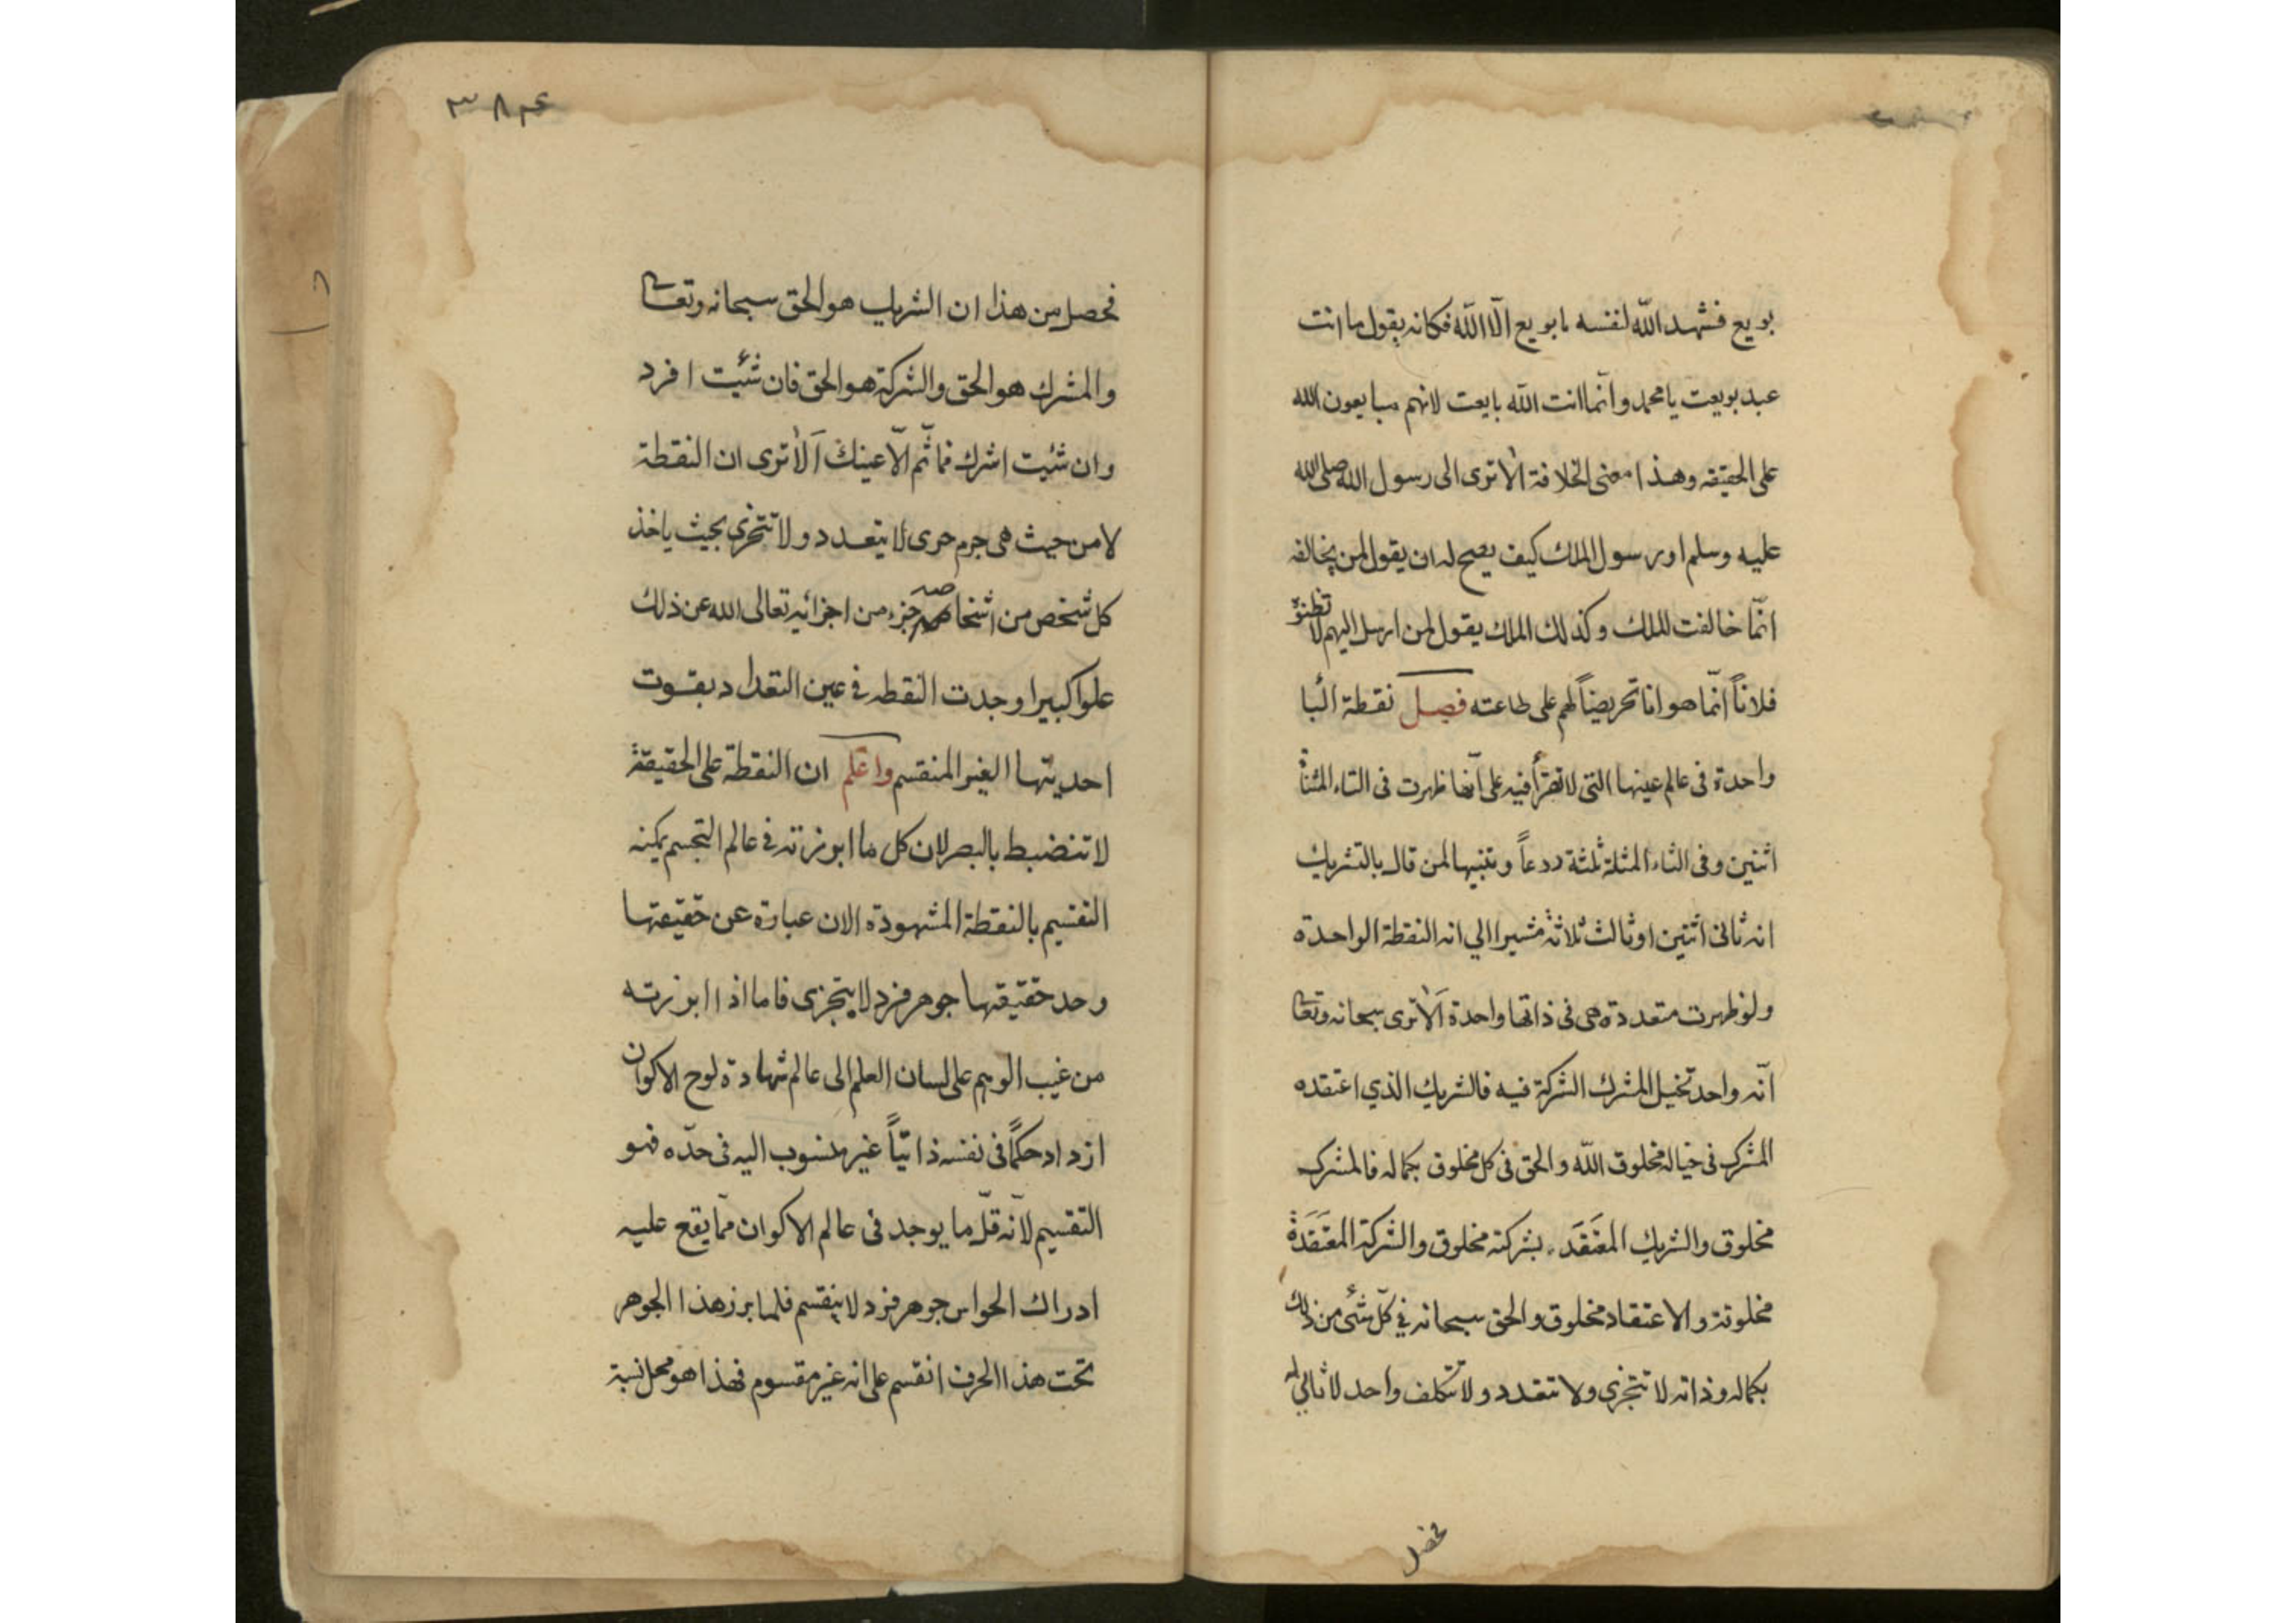 بويع فشهد الله لنفسه ما بويع الّا الله فكانه يقول ما انت
عبد بويعت يا محمد وانّما انت الله بايعت لانهم مبايعون الله
على الحقيقه وهذا معنى الخلافة الا ترى الى رسول الله صلى الله
عليه وسلم او رسول الملك كيف يصح له ان يقول لمن يخالفه
انّما خالفت للملك وكذلك الملك يقول لمن ارسل اليهم لا تظنوه
فلاناً انّما هو انا تحريضاً لهم على طاعته فصل نقطة البا
واحدة فى عالم عينها التى لا تقرأ فيه على انّها ظهرت فى التاء المثناة
اثنين وفى الثاء المثلة ثلثة ردعاً وتنبيها لمن قال بالتشريك
انه ثانى اثنين او ثالث ثلاثة مشيرا الي انه النقطة الواحدة
ولو ظهرت متعددة هى فى ذاتها واحدة اَلا ترى سبحانه وتعا
انّه واحد تخيل المشرك الشركة فيه فالشريك الذي اعتقده
المشرك فى خياله مخلوق الله والحق فى كل مخلوق بكماله فالمشرك
مخلوق والشريك المعتَقَد بشركته مخلوق والشركة المعتَقَدَة
مخلوقة والاعتقاد مخلوق والحق سبحانه في كلّ شئ من ذلك
بكماله وذاته لا تتجزى ولا تتعدد ولا تتكلف واحد لا ثاني له
فحصل
٣٨٤
فحصل من هذا ان الشريك هو الحق سبحانه وتعا
والمشرك هو الحق والشركة هو الحق فان شئيت افرد
وان شئيت اشرك فما ثّم الّا عينك اَلا ترى ان النقطة
لا من حيث هى جرم حرى لا يتعدد ولا تتجزى بحيث ياخذ
كل شخص من اشخاصه جزء من اجزائه تعالى الله عن ذلك
علوا كبيرا وجدت النقطه في عين التعداد بقوت
احديتها الغير المنقسم واعلم ان النقطة على الحقيقة
لا تنضبط بالبصر لان كل ما ابرزته في عالم التجسم يمكنه
التقسيم بالنقطة المشهودة الان عبارة عن حقيقتها
وحد حقيقتها جوهر فرد لا يتجزى فاما اذا ابرزته
من غيب الوهم على لسان العلم الى عالم شهادة لوح الاكوان
ازداد حكمًا فى نفسه ذاتيّاً غير منسوب اليه فى حدّه فهو
التقسيم لانّه قلّ ما يوجد فى عالم الاكوان ممّا يقع عليه
ادراك الحواس جوهر فرد لا ينقسم فلما برز هذا الجوهر
تحت هذا الحرف انقسم على انه غير مقسوم فهذا هو محل نسبة